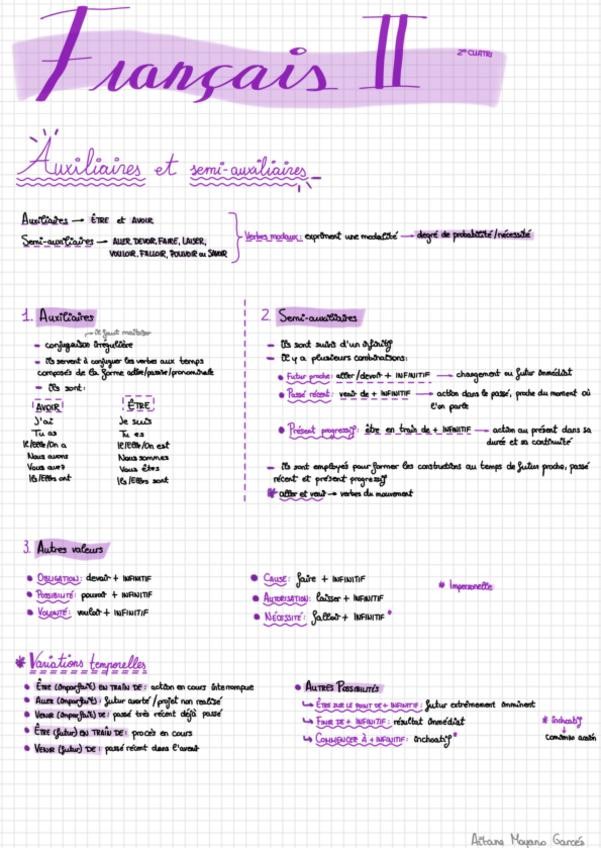 Français II
2º CUATRI
Auxiliaires et semi-auxiliaires
Auxiliaires → ÊTRE et AVOIR
Semi-auxiliaires → ALLER, DEVOIR, FAIRE, LAISER,
VOULOIR, FALLOIR, POUVOIR ou SAVOIR
Verbes modaux: expriment une modalité → degré de probabilité/nécessité
1. Auxiliaires
→ il faut maîtriser
- conjugaison irrégulière
- ils servent à conjuguer les verbes aux temps
composés de la forme active/passive/pronominale
- ils sont:
AVOIR
J'ai
Tu as
Il/Elle/On a
Nous avons
Vous avez
Ils/Elles ont
ÊTRE
Je suis
Tu es
Il/Elle/On est
Nous sommes
Vous êtes
Ils/Elles sont
2. Semi-auxiliaires
- Ils sont suivis d'un infinitif
- Il y a plusieurs combinations:
• Futur proche: aller/devoir + INFINITIF → changement ou futur immédiat
• Passé récent: venir de + INFINITIF → action dans le passé, proche du moment où
l'on parle
• Présent progressif: être en train de + INFINITIF → action au présent dans sa
durée et sa continuité
- ils sont employés pour former les constructions au temps de futur proche, passé
récent et présent progressif
* aller et venir → verbes du mouvement
3. Autres valeurs
• OBLIGATION: devoir + INFINITIF
• POSSIBILITÉ: pouvoir + INFINITIF
• VOLONTÉ: vouloir + INFINITIF
• CAUSE: faire + INFINITIF
• AUTORISATION: laisser + INFINITIF
• NÉCESSITÉ: falloir + INFINITIF*
* Impersonelle
* Variations temporelles
• ÊTRE (imparfait) EN TRAIN DE: action en cours interrompue
• ALLER (imparfait): futur avorté/projet non réalisé
• VENIR (imparfait) DE: passé très récent déjà passé
• ÊTRE (futur) EN TRAIN DE: procès en cours
• VENIR (futur) DE: passé récent dans l'avenir
• AUTRES POSSIBILITÉS
↳ ÊTRE SUR LE POINT DE + INFINITIF: futur extrêmement imminent
↳ FINIR DE + INFINITIF: résultat immédiat
↳ COMMENCER À + INFINITIF: inchoatif*
* inchoatif
↓
comienzo acción
Aitana Moyano Garcés